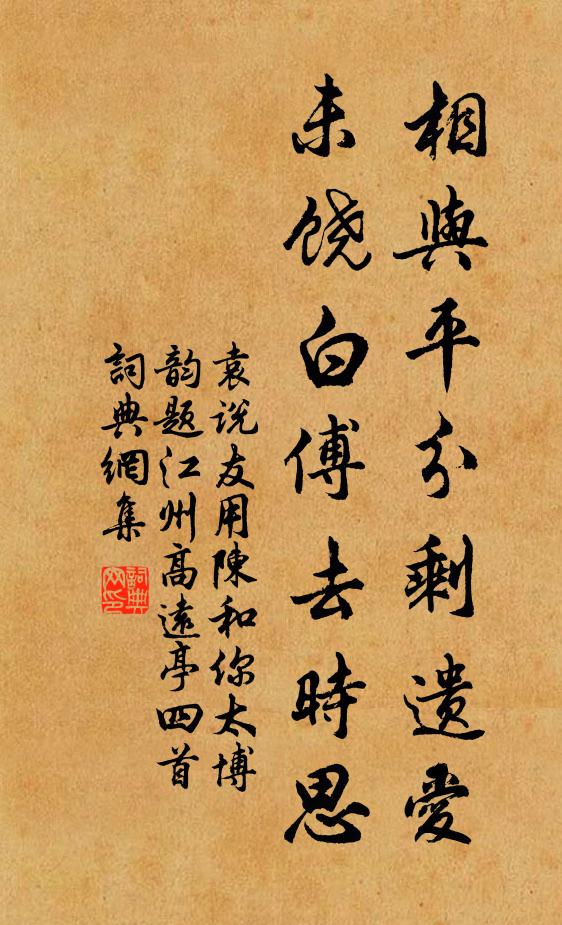 相與平分剩遺愛
未饶白傅去時思
袁说友用陳和你太博
韵题江州高遠亭四首
詞典網集
詞典
网印